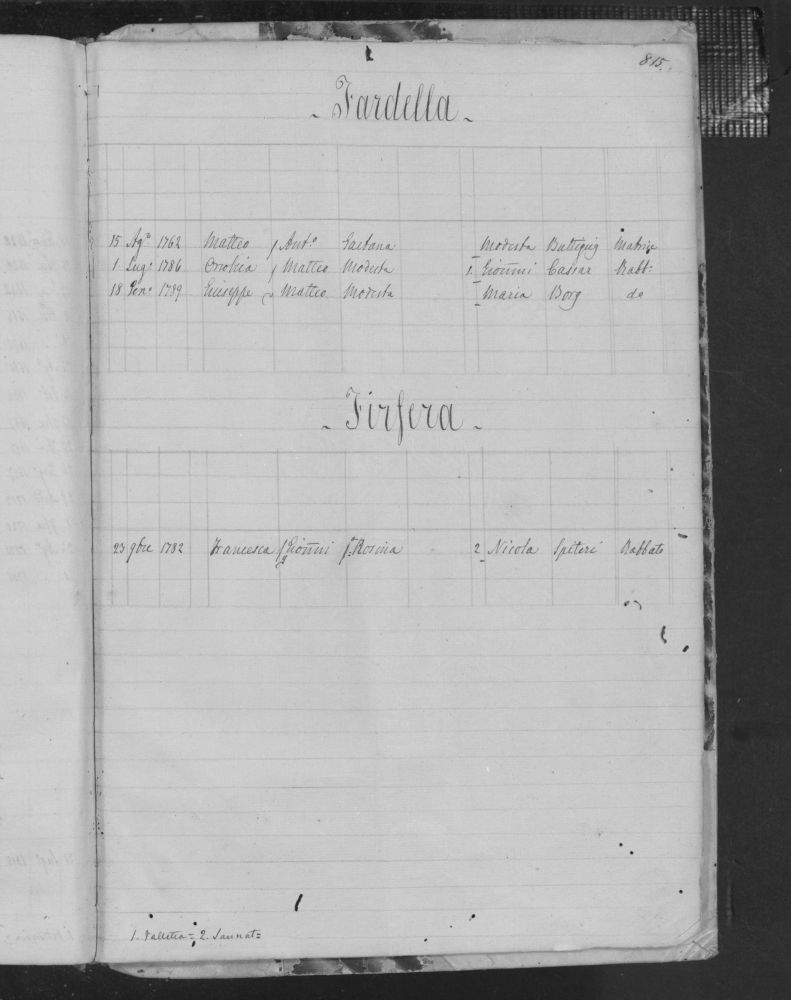 815.
- Fardella -
15 Ag.º 1762 Matteo f Ant.º Gaetana Modesta Buttigieg Matrice
1 Lug.º 1786 f Matteo Modesta 1. Gioñni Cassar Rabb:
18 Gen.º 1789 Giuseppe f Matteo Modesta Maria Borg do
- Firfera -
23 9bre 1782 Francesca f Gioñni f Rosina 2 Nicola Spiteri Rabbato
2
1. Valletta = 2. Sannat =